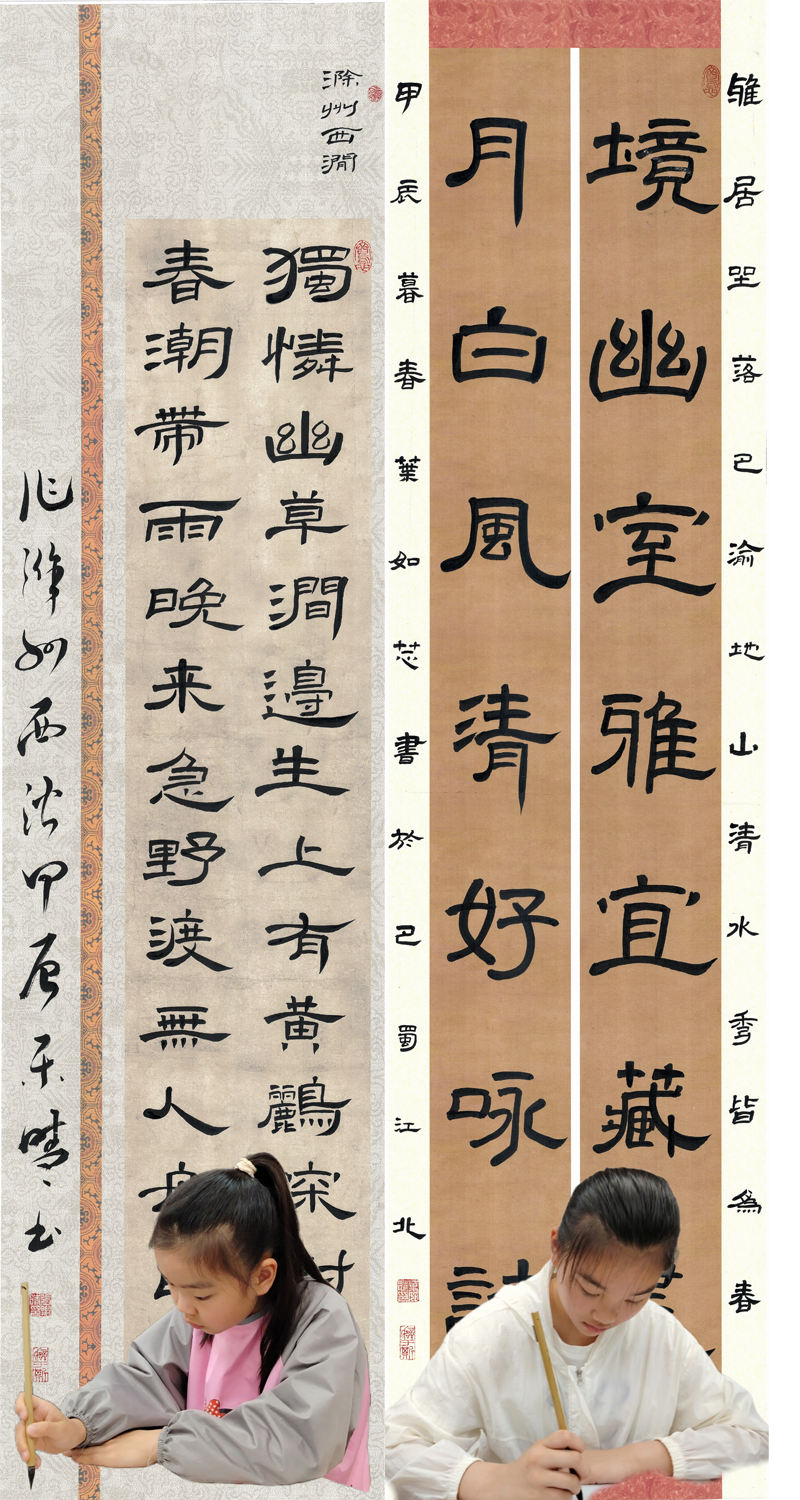 雖居坐落巴渝地山清水秀皆為春
境幽室雅宜藏
月白風清好咏
甲辰暮春葉如芯書於巴蜀江北
滁州西澗
獨憐幽草澗邊生上有黄鸝深
春潮帶雨晚来急野渡無人舟
滁州西澗甲辰晴晴書